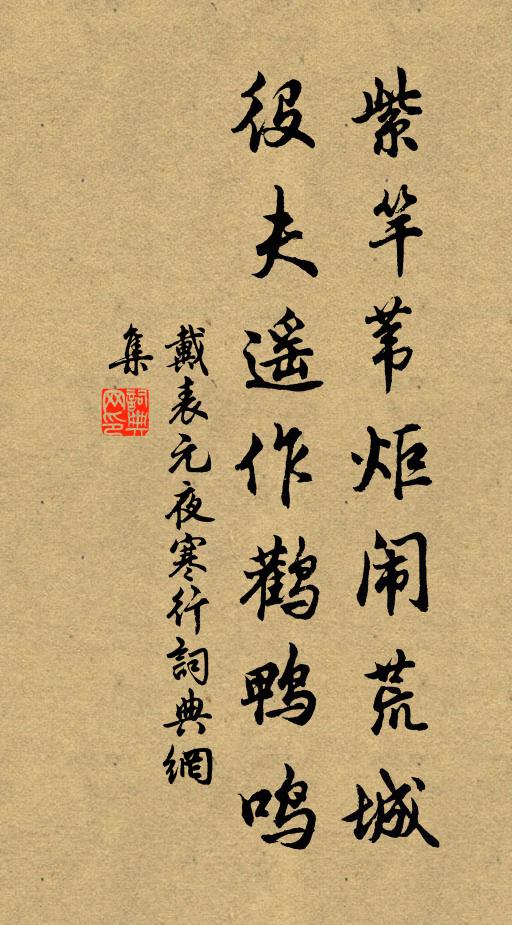 紫竿苇炬闹荒城
役夫遥作鹳鸭鸣
戴表元夜寒行詞典網
集
詞典
网印